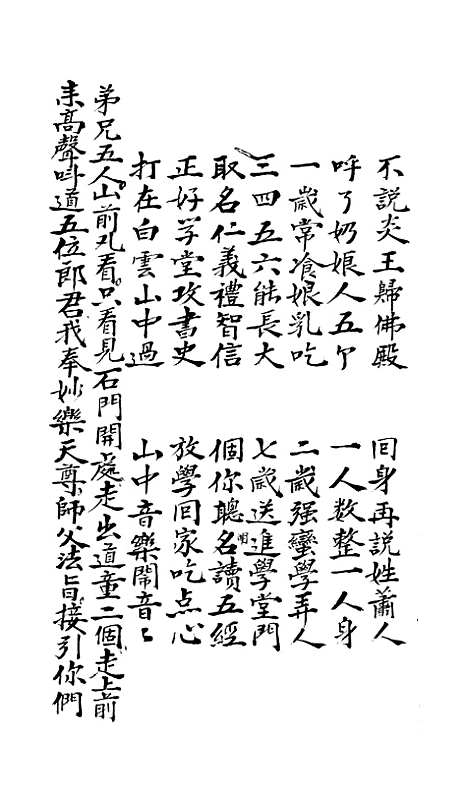 不説炎王歸佛殿　回身再説姓蕭人
呼了奶娘人五个　一人数整一人身
一嵗常飡娘乳吃　二嵗强蠻學弄人
三四五六能長大　七嵗送進學堂門
取名仁義禮智信　個你聰名讀五經
正好学堂攻書史　放學回家吃点心
打在白雲山中過　山中音樂鬧音〻
弟兄五人山前觀看只看見石門開處走出道童二個走上前
来高聲叫道五位郎君我奉妙樂天尊師父法旨接引你們